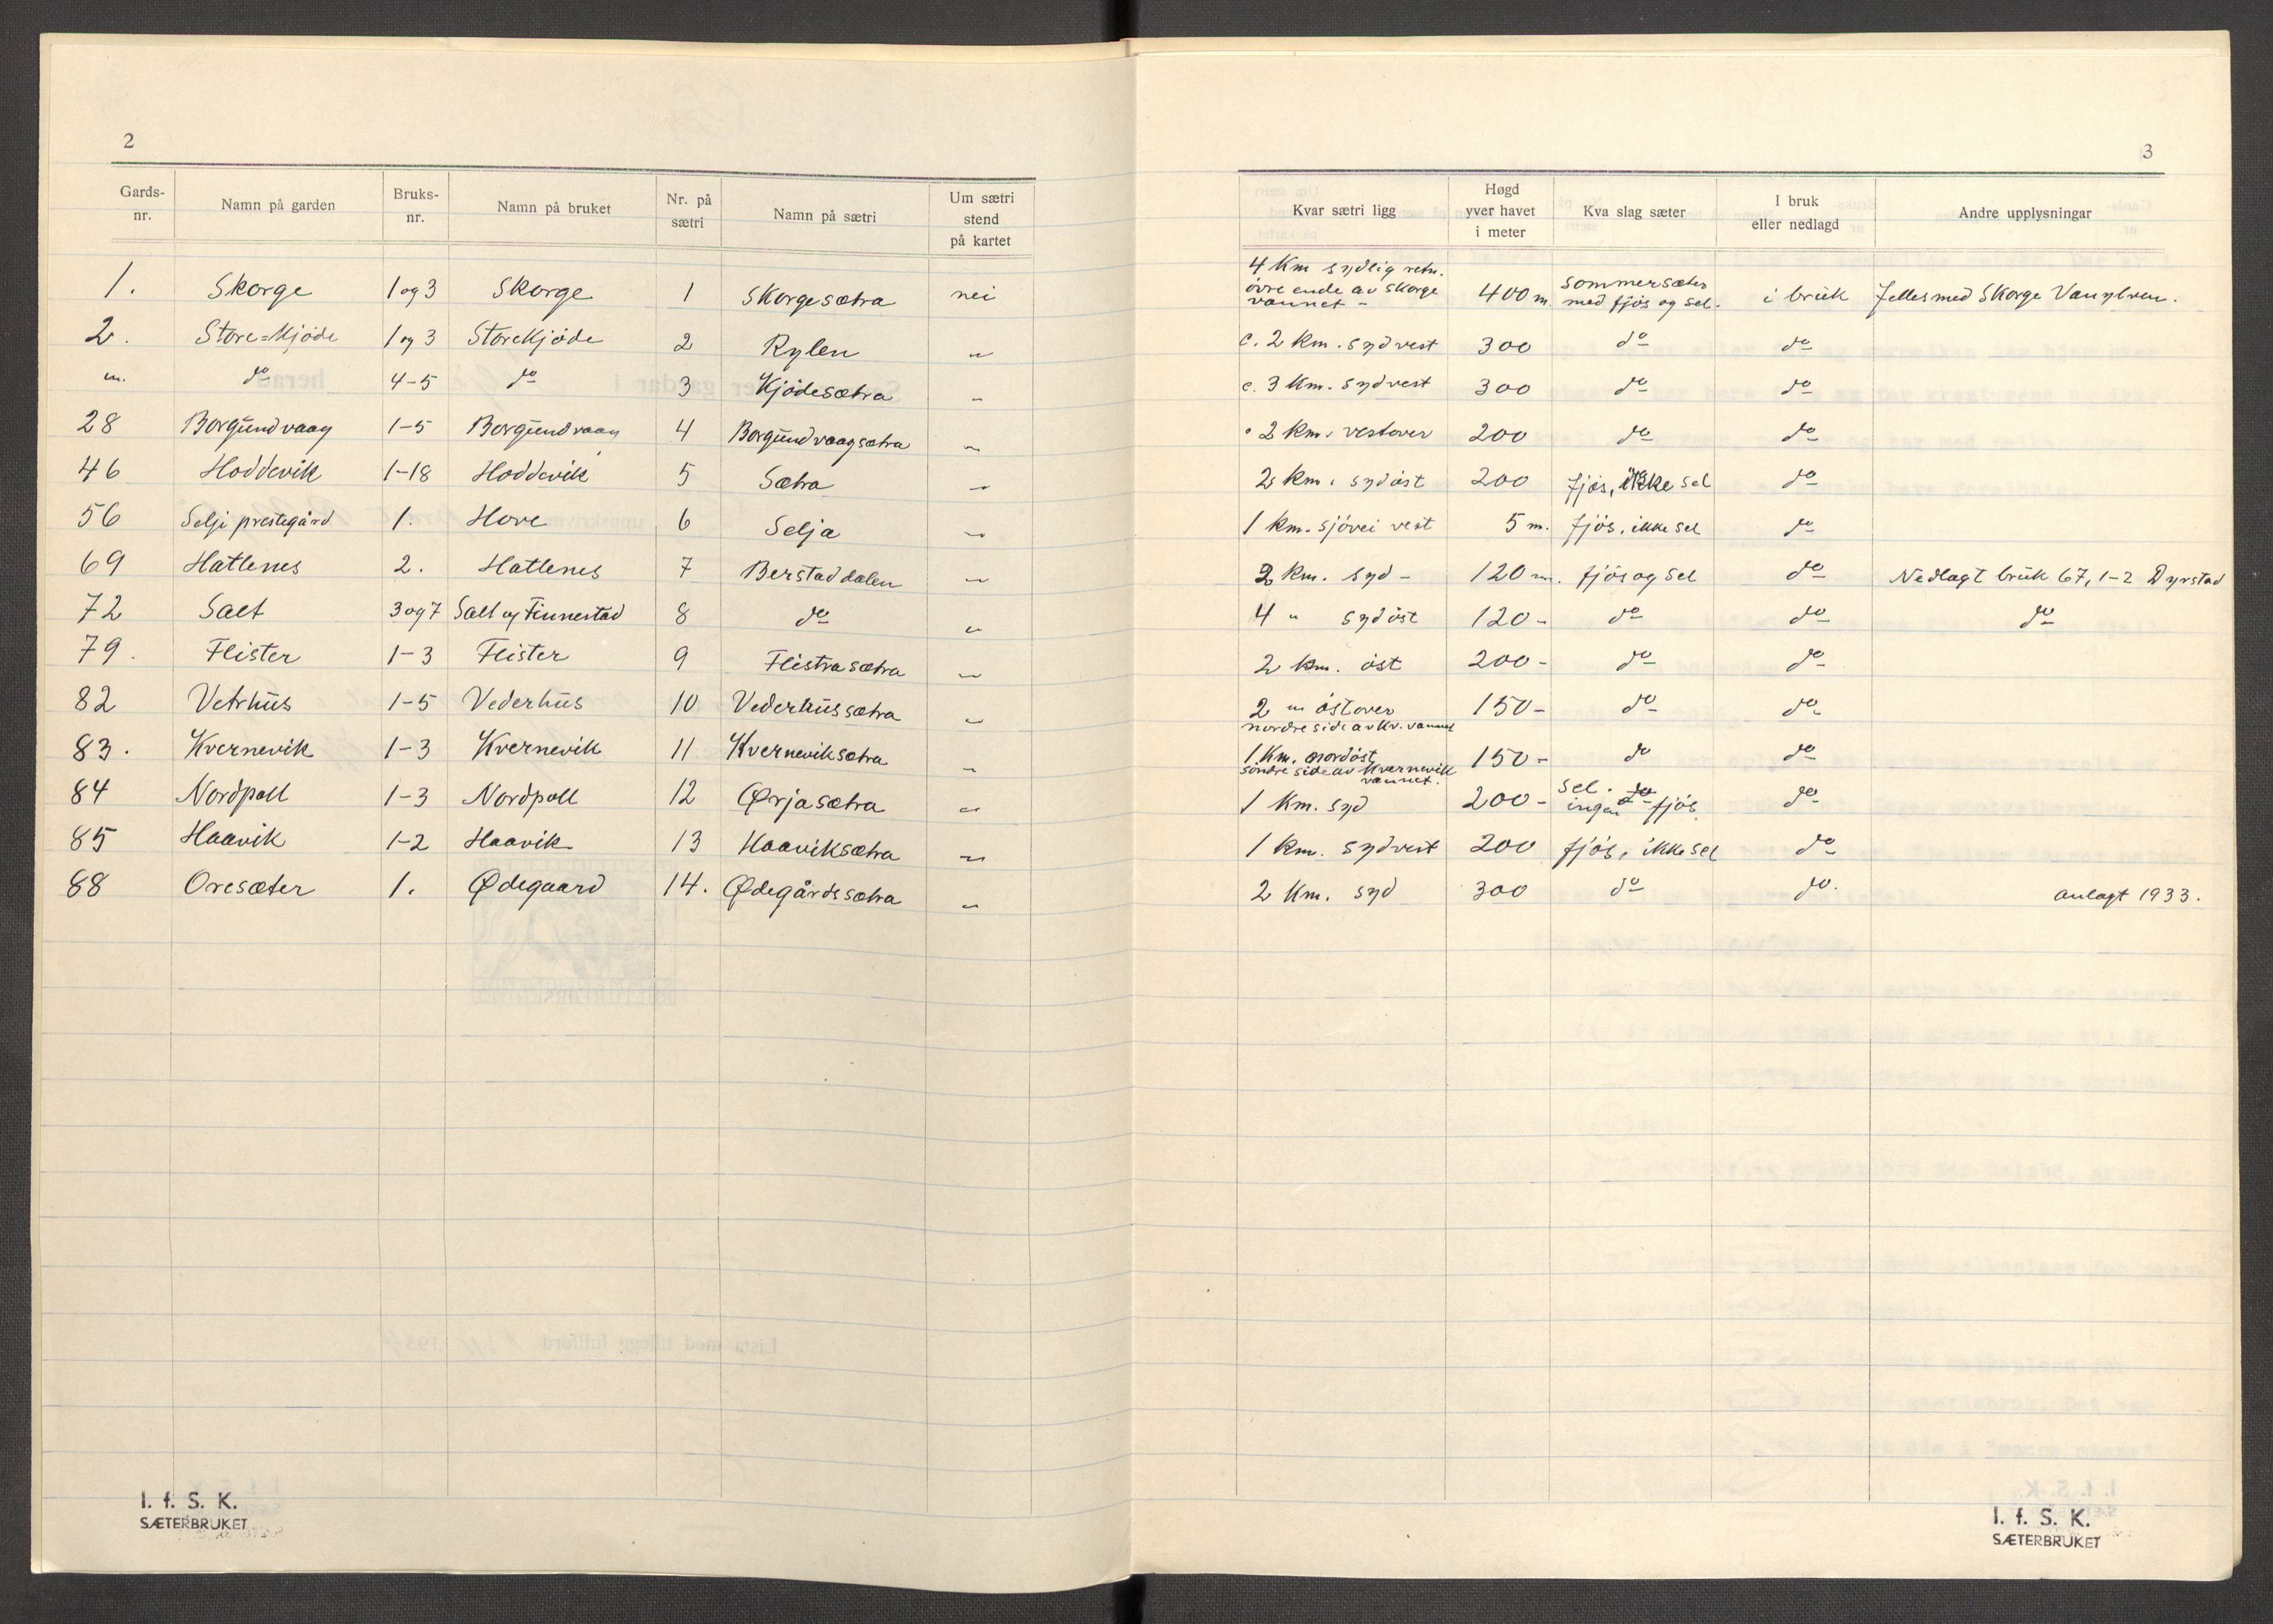 2
Gards-nr. Namn på garden Bruks-nr. Namn på bruket Nr. på sætri Namn på sætri Um sætri stend på kartet
1. Skorge 1 og 3 Skorge 1 Skorgesætra nei
2. Store=Kjöde 1 og 3 StoreKjöde 2 Rylen "
" do 4-5 do 3 Kjödesætra "
28 Borgundvaag 1-5 Borgundvaag 4 Borgundvaagsætra "
46 Hoddevik 1-18 Hoddevik 5 Sætra "
56 Selje prestegård 1. Hove 6 Selja "
69 Hatlenes 2. Hatlenes 7 Berstaddalen "
72 Salt 3 og 7 Salt og Finnestad 8 do "
79. Fleister 1-3 Fleister 9 Fleistrasætra "
82 Vetrhus 1-5 Vederhus 10 Vederhussætra "
83. Kvernevik 1-3 Kvernevik 11 Kverneviksætra "
84 Nordpoll 1-3 Nordpoll 12 Ørjasætra "
85 Haavik 1-2 Haavik 13 Haaviksætra "
88 Oresæter 1. Ødegaard 14. Ødegårdssætra "
I. f. S. K.
SÆTERBRUKET
3
Kvar sætri ligg Høgd yver havet i meter Kva slag sæter I bruk eller nedlagd Andre upplysningar
4 Km sydlig retn.
övre ende av Skorge
vannet - 400 m. sommersæter med fjös og sel. i bruk Felles med Skorge Vanylven.
c. 2 Km. sydvest 300 do do
c. 3 Km. sydvest 300 do do
" 2 Km. vestover 200 do do
2 Km. sydöst 200 fjös, ikke sel do
1 Km. sjövei vest 5 m. fjös, ikke sel do
2 Km. syd - 120 m. fjös og sel do Nedlagt bruk 67, 1-2 Dyrstad
4 " sydöst 120 - do do do
2 Km. öst 200 - do do
2 " östover 150 - do do
nordre side av Kv. vannet
1 Km. nordöst 150 - do do
söndre side av Kvernevik
vannet.
1 Km. syd 200 - sel. do ingen fjös. do
1 Km. sydvest 200 fjös, ikke sel do
2 Km. syd 300 do do. anlagt 1933.
I. f. S. K.
SÆTERBRUKET